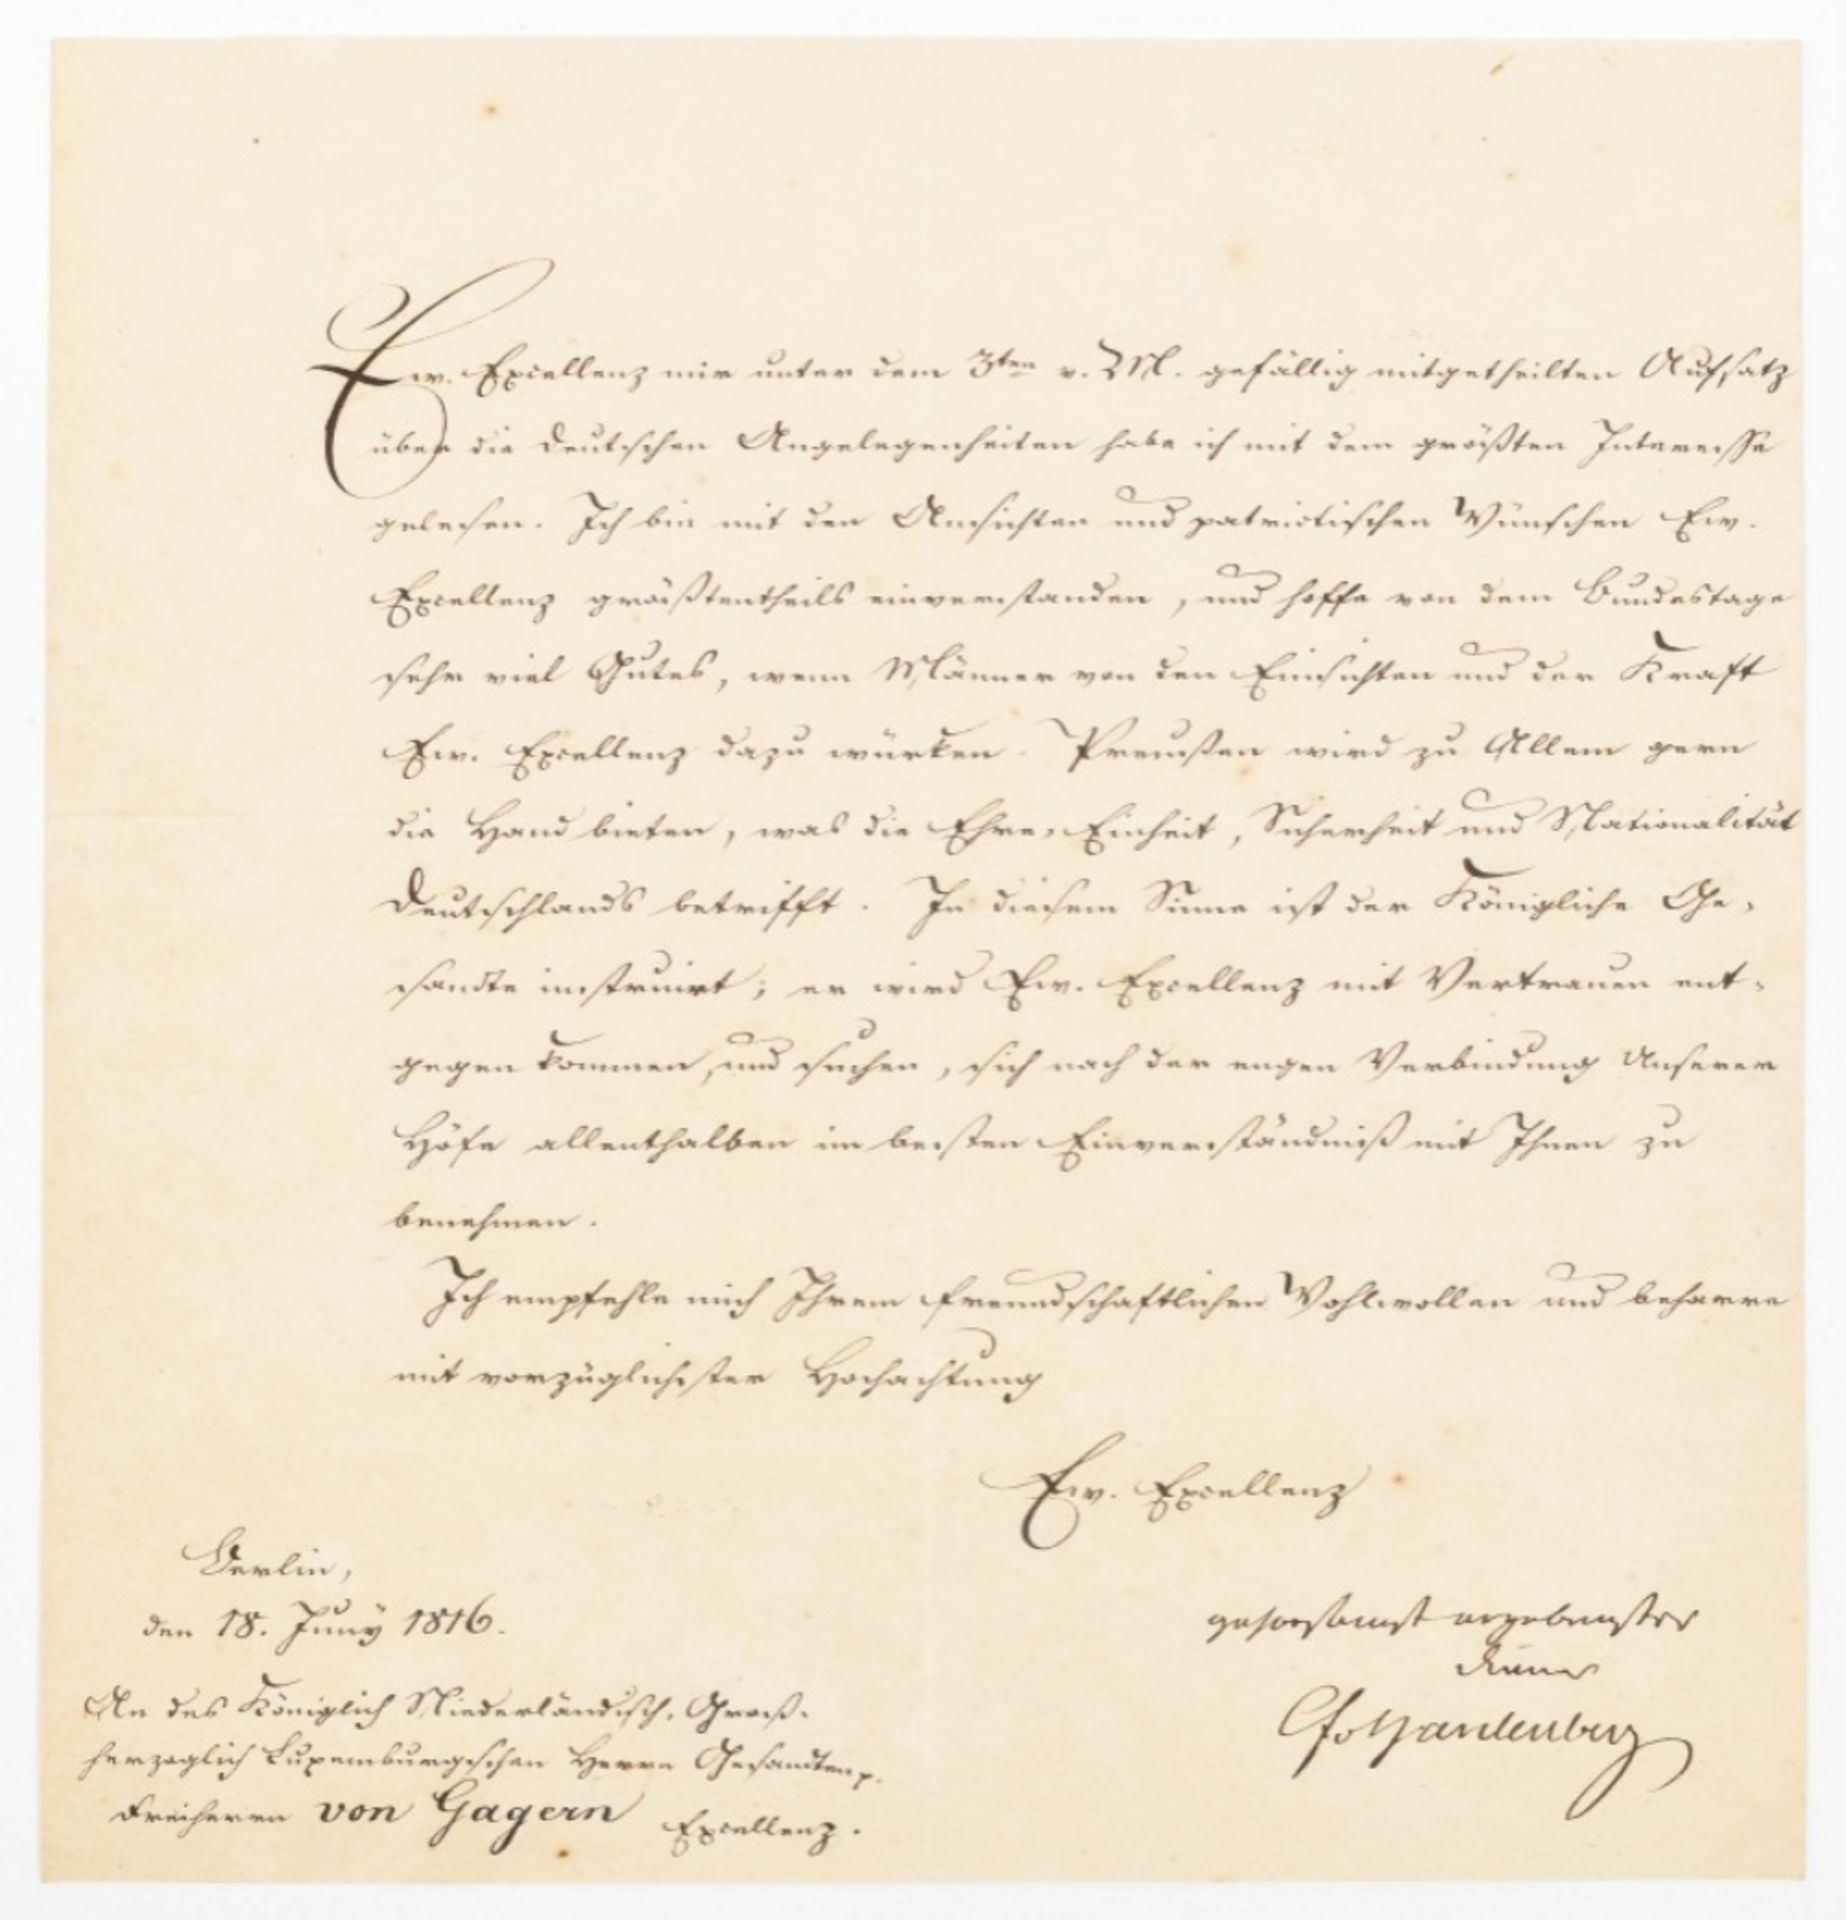 Ew. Excellenz mir unter dem 3ten v. M. gefällig mitgetheilten Aufsatz
über die deutschen Angelegenheiten habe ich mit dem größten Interesse
gelesen. Ich bin mit den Ansichten und patriotischen Wünschen Ew.
Excellenz größtentheils einverstanden, und hoffe von dem Bundestage
sehr viel Gutes, wenn Männer von den Einsichten und der Kraft
Ew. Excellenz dazu würken. Preussen wird zu Allem gern
die Hand bieten, was die Ehre, Einheit, Sicherheit und Nationalität
Deutschlands betrifft. In diesem Sinne ist der Königliche Ge-
sandte instruirt; er wird Ew. Excellenz mit Vertrauen ent-
gegen kommen, und suchen, sich nach der engen Verbindung Unserer
Höfe allenthalben im besten Einverständniß mit Ihnen zu
benehmen.
Ich empfehle mich Ihrem freundschaftlichen Wohlwollen und beharre
mit vorzüglichster Hochachtung
Ew. Excellenz
Berlin,
den 18. Juny 1816.
gehorsamst ergebenster
Diener
CfvHardenberg
An des Königlich Niederländisch, Groß-
herzoglich Luxemburgischen Herrn Gesandten p.
Freiherrn von Gagern Excellenz.